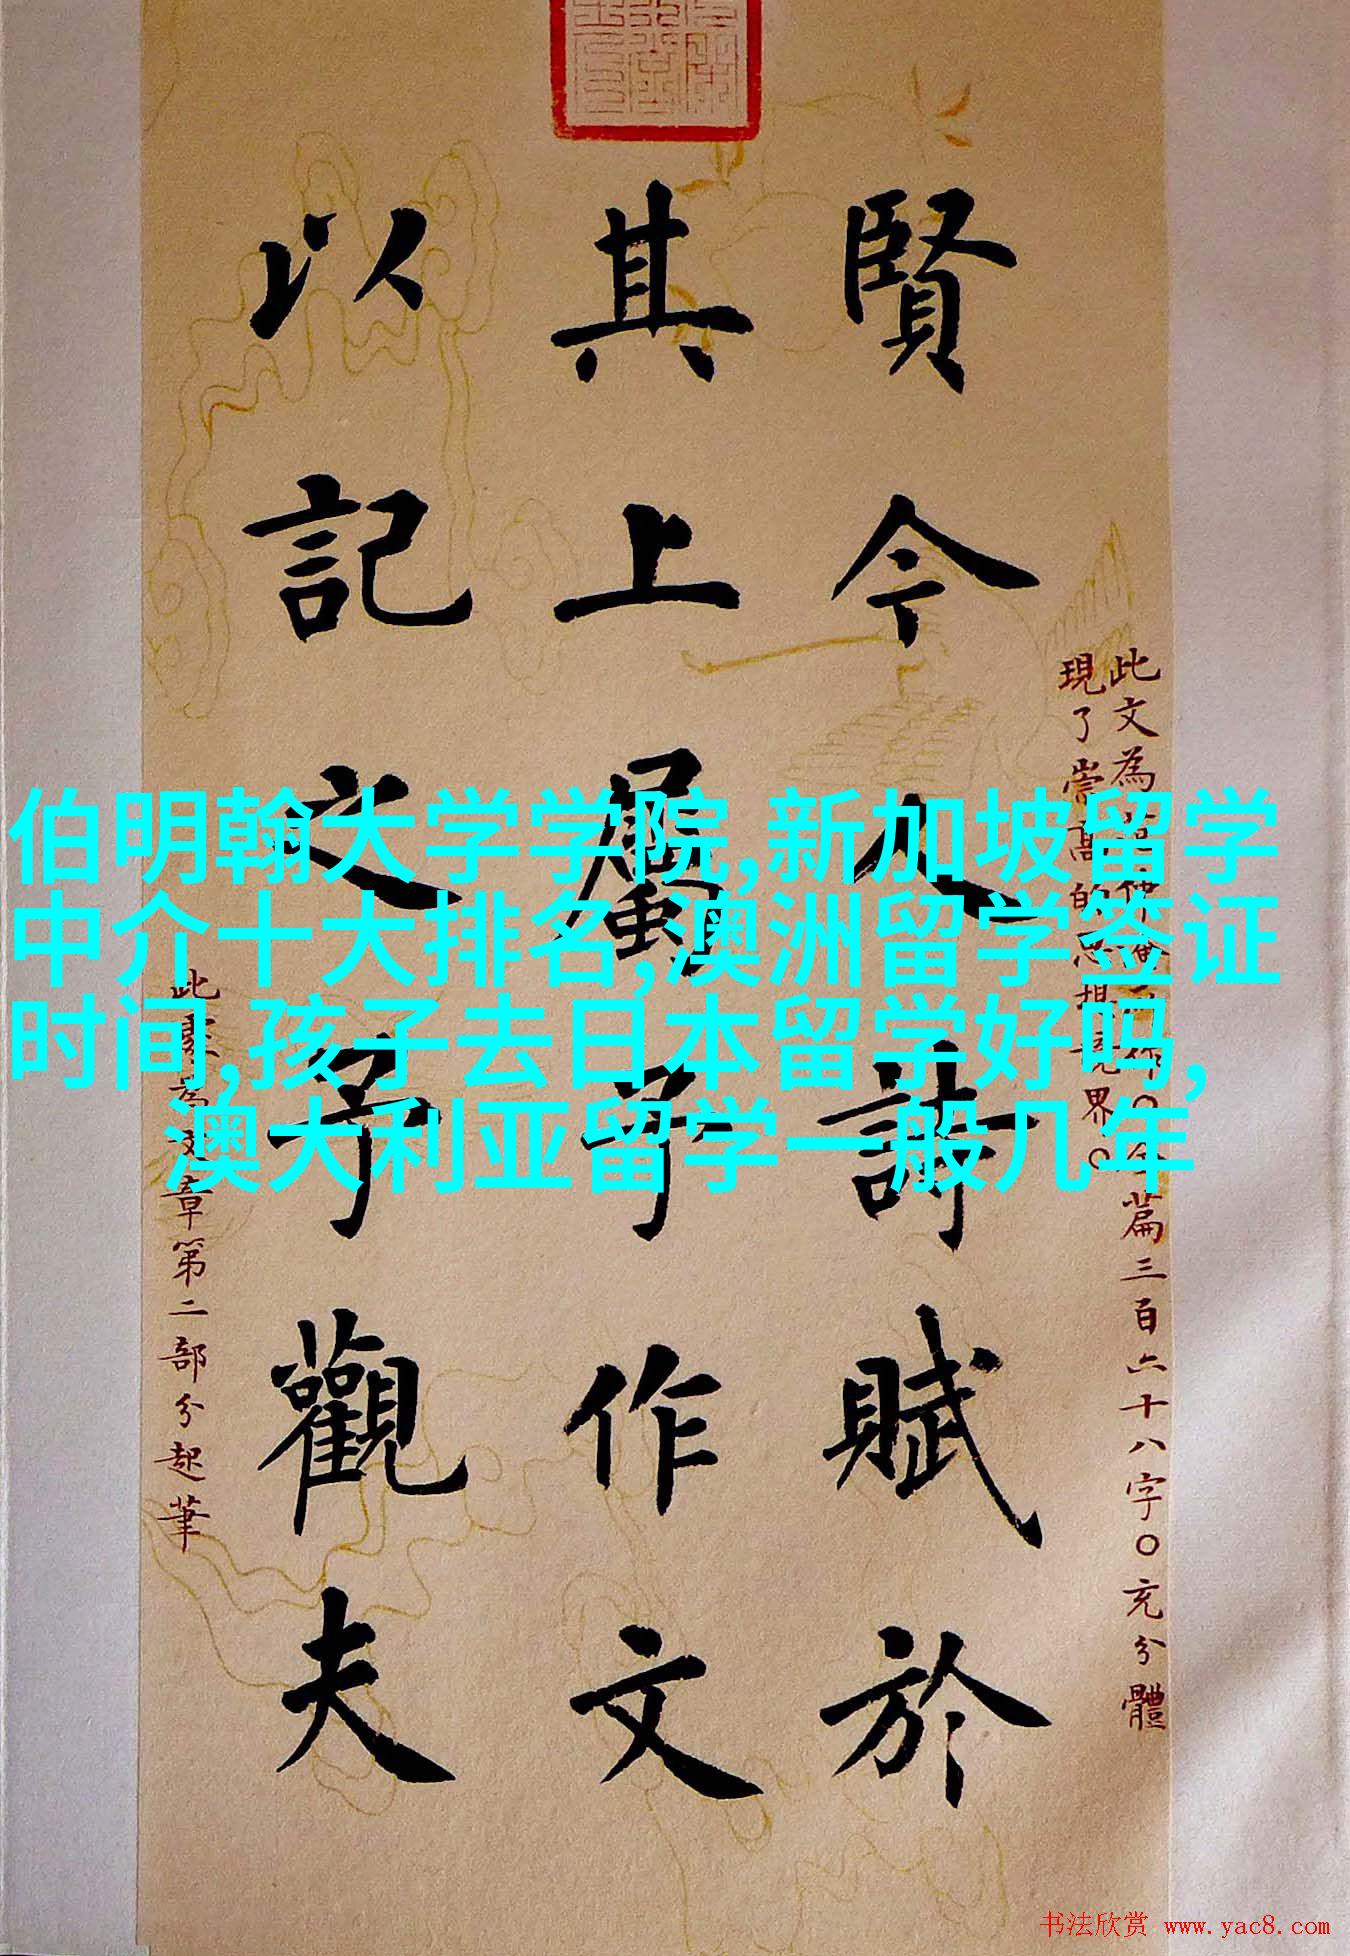 賢今人詩賦於
其上屬予作文
以記之予觀夫
此文為
篇三百六十八字○充分體
現了崇高的思想境界○
此處為文章第二部分起筆
伯明翰大学学院,新加坡留学
中介十大排名,澳洲留学签证
时间,孩子去日本留学好吗,
澳大利亚留学一般几年
书法欣赏 www.yac8.com